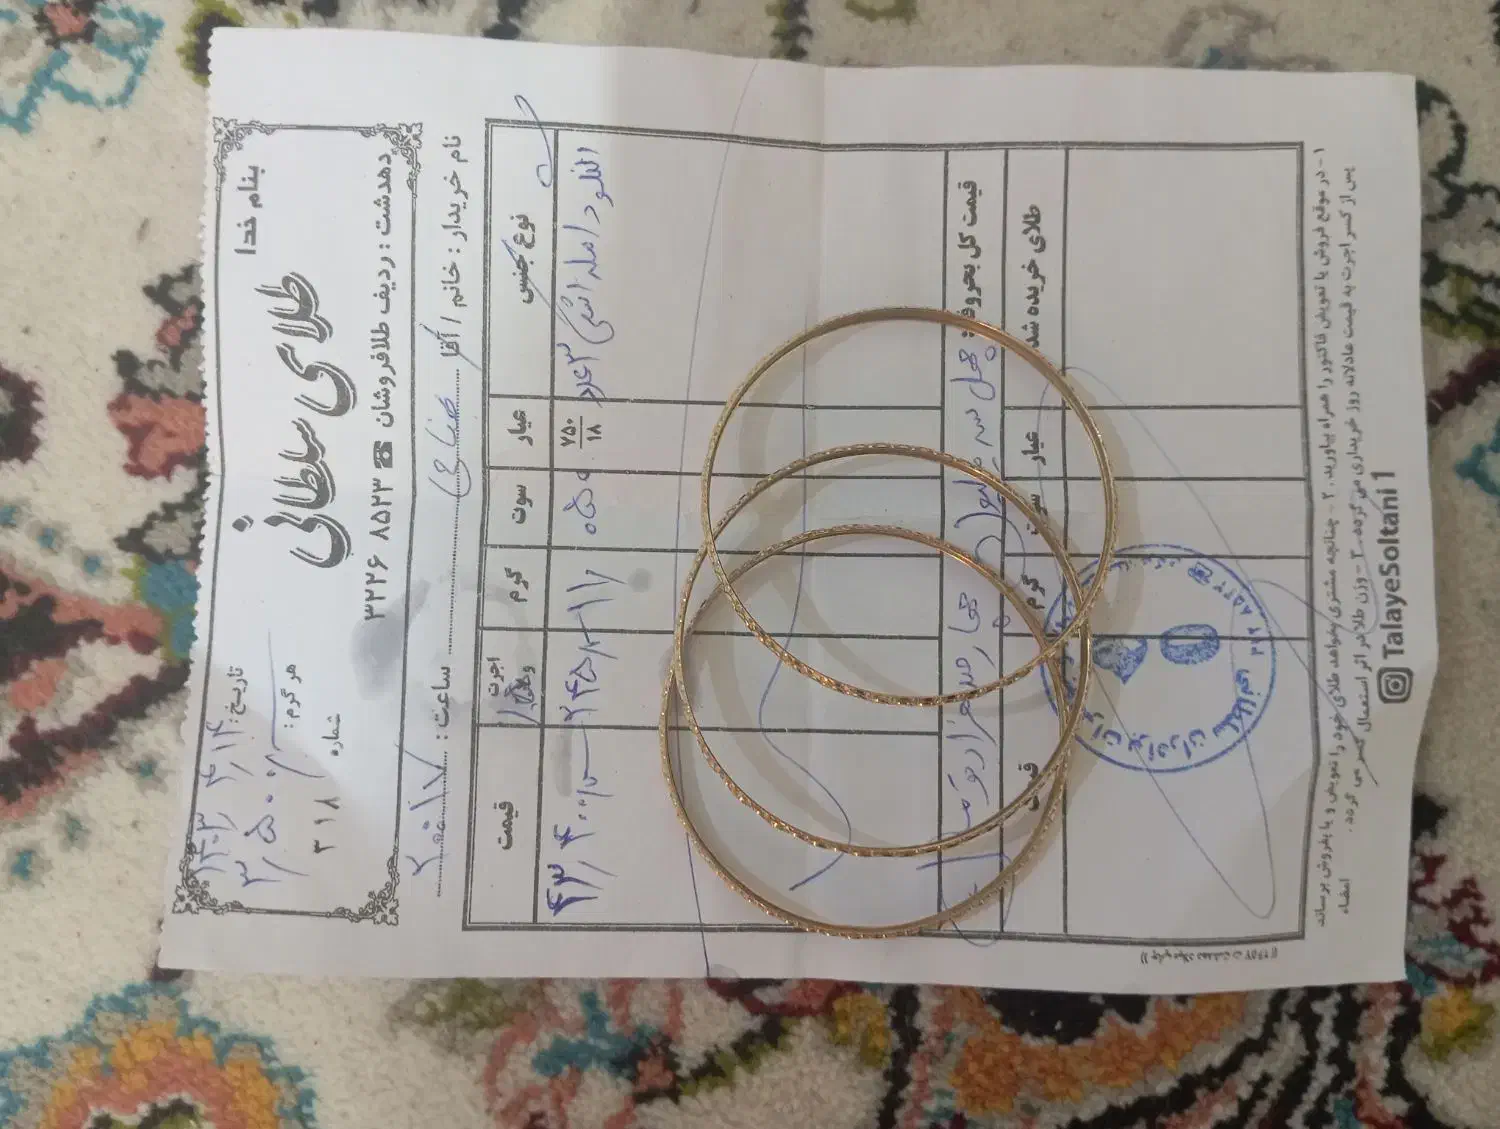 بنام خدا
طلای سلطانی
دهدشت : ردیف طلافروشان ☎ ۳۲۲۶ ۸۵۲۳
تاریخ : ۱۴۰۳/۴/۱۴
هر گرم : ۳/۵۰۰/
شماره ۳۱۸
نام خریدار : خانم / آقا ساعت : ۲۰:۱۷
نوع جنس عیار سوت گرم اجرت قیمت
النگو ۳ عدد ۷۵۰/۱۸ ۴۳/۴۰۰/
قیمت کل بحروف : چهل سه میلیون چهارصد هزار تومان
طلای خریده شده عیار سوت گرم قیمت
۱ - در موقع فروش یا تعویض فاکتور را همراه بیاورید . ۲ - چنانچه مشتری بخواهد طلای خود را تعویض و یا بفروش برساند
پس از کسر اجرت به قیمت عادلانه روز خریداری می گردد . ۳ - وزن طلا در اثر استعمال کسر می گردد . امضاء
TalayeSoltani 1